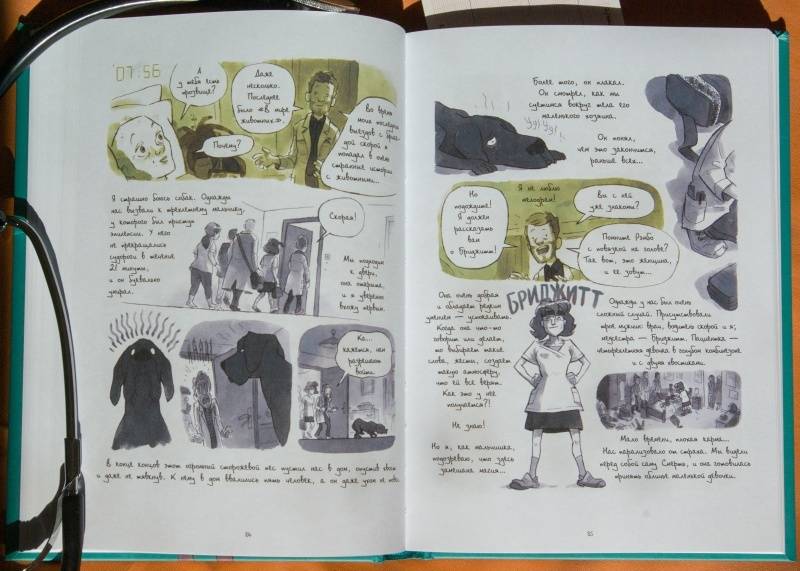 07:56
А
у тебя есть
прозвище?
Почему?
Даже
несколько.
Последнее
было «В мире
животных».
Во время
моих последних
выездов с брига-
дой скорой я
попадал в очень
странные истории
с животными...
Я страшно боюсь собак. Однажды
нас вызвали к трёхлетнему мальчику,
у которого был приступ
эпилепсии. У него
не прекращались
судороги в течение
21 минуты,
и он буквально
умирал.
Скорая!
Мы подходим
к двери,
она открыта,
и я уверенно
вхожу первым.
Ка...
кажется, нам
разрешают
войти.
В конце концов этот огромный сторожевой пёс пустил нас в дом, опустив хвост
и даже не тявкнув. К нему в дом ввалились пять человек, а он даже ухом не повёл
84
Более того, он плакал.
Он смотрел, как мы
суетимся вокруг тела его
маленького хозяина.
Ууууууу!
Он понял,
чем это закончится,
раньше всех...
Но
подождите!
Я должен
рассказать
вам
о Бриджитт!
Я не люблю
телефрен!
Вы с ней
уже знакомы?
Помните Рэмбо
с повязкой на голове?
Так вот, это женщина,
и её зовут...
БРИДЖИТТ
Она очень добрая
и обладает редким
умением — успокаивать.
Когда она что-то
говорит или делает,
то выбирает такие
слова, жесты, создаёт
такую атмосферу,
что ей все верят.
Как это у неё
получается?!
Не знаю!
Но я, как мальчишка,
подозреваю, что здесь
замешана магия...
Однажды у нас был очень
сложный случай. Присутствовали
трое мужчин: врач, водитель скорой и я;
медсестра — Бриджитт. Пациентка —
четырёхлетняя девочка в голубом комбинезоне
и с двумя хвостиками.
Мало времени, плохая карма...
Нас парализовало от страха. Мы видели
перед собой саму Смерть, и она готовилась
принять обличье маленькой девочки.
85